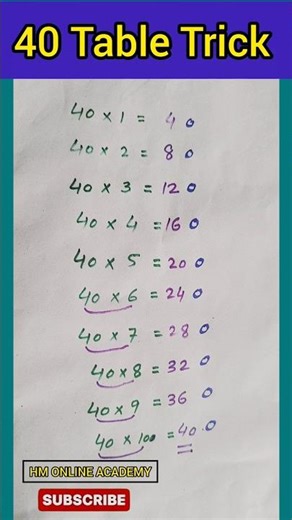 40 Table Trick
40 × 1 = 4 0
40 × 2 = 8 0
40 × 3 = 12 0
40 × 4 = 16 0
40 × 5 = 20 0
40 × 6 = 24 0
40 × 7 = 28 0
40 × 8 = 32 0
40 × 9 = 36 0
40 × 100 = 40.0
HM ONLINE ACADEMY
SUBSCRIBE